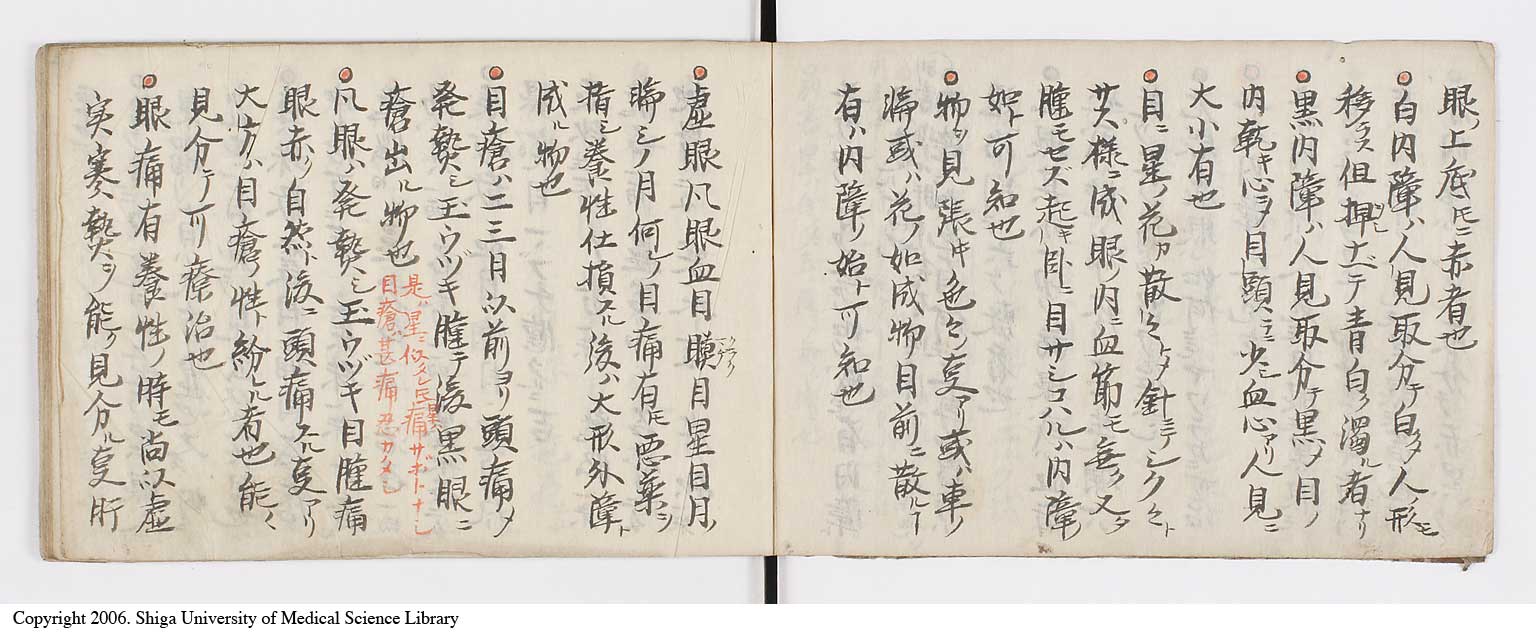 眼ノ上底ニ赤者也
白内障ハ人見取分テ白メ人形モ
移ラス但押ナベテ青白ク濁ル者ナリ
黒内障ハ人見取分テ黒メ目ノ
内乾キ心ヲメ目顕ニ少シ血心アリ人見ニ
大小有也
目ニ星ノ花カ散
サス様ニ成眼ノ内ニ血筋モ無ク又
腫モセズ起キ臥ニ目サシコハルハ内障
如ト可知也
物ヲ見張中色々ノ変アリ或ハ車ノ
輪或ハ花ノ如成物目前ニ散ル
有ハ内障ノ始ト可知也
虚眼凡眼血目膜目星目月ノ
輪シノ月何レノ目痛有モ悪薬ヲ
指シ養性仕損スル後ハ大形外障ト
成ル物也
目瘡ハ二三月以前ヨリ頭痛メ
発熱シ玉ウヅキ腫テ後黒眼ニ
瘡出ル物也
是ハ星ニ似タレ𪜈痛サボトナシ
目瘡ハ甚痛忍カタシ
凡眼ハ発熱シ玉ウヅキ目腫痛
眼赤ク自然ト後ニ頭痛スル変アリ
大方ハ目瘡ノ性ト紛ルル者也能々
見分テ可療治也
眼痛有養性ノ時モ尚以虚
実寒熱ヲ能ク見分ル変肝